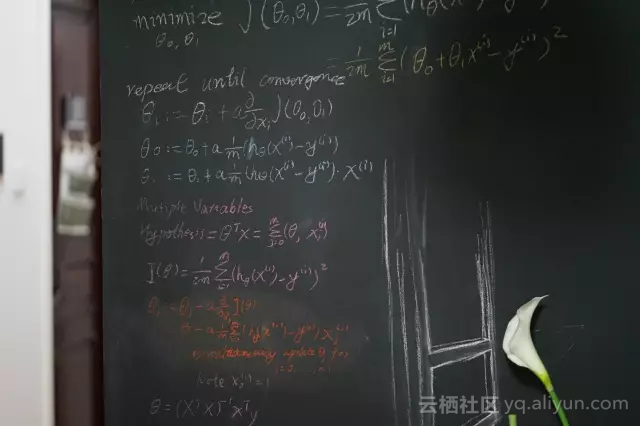 minimize J(θ₀,θ₁) = 1/2m Σ i=1 (hθ(x
θ₀, θ₁
= 1/2m Σ i=1 m (θ₀ + θ₁x⁽ⁱ⁾ - y⁽ⁱ⁾)²
repeat until convergence
θᵢ := θᵢ + a ∂/∂xᵢ J(θ₀,θ₁)
θ₀ := θ₀ + a 1/m (hθ(x⁽ⁱ⁾) - y⁽ⁱ⁾)
θ₁ := θ₁ + a 1/m (hθ(x⁽ⁱ⁾ - y⁽ⁱ⁾) · x⁽ⁱ⁾
Multiple Variables
Hypothesis = θᵀX = Σ j=0 m (θ, x⁽ⁱ⁾)
J(θ) = 1/2m Σ i=1 m (hθ(x⁽ⁱ⁾) - y⁽ⁱ⁾)²
θⱼ := θⱼ - a J(θ)
- a 1/m Σ (x⁽ⁱ⁾ - y⁽ⁱ⁾) xⱼ⁽ⁱ⁾
simultaneously update θⱼ for
Note x₀⁽ⁱ⁾ = 1
θ = (XᵀX)⁻¹xᵀy
云栖社区 yq.aliyun.com